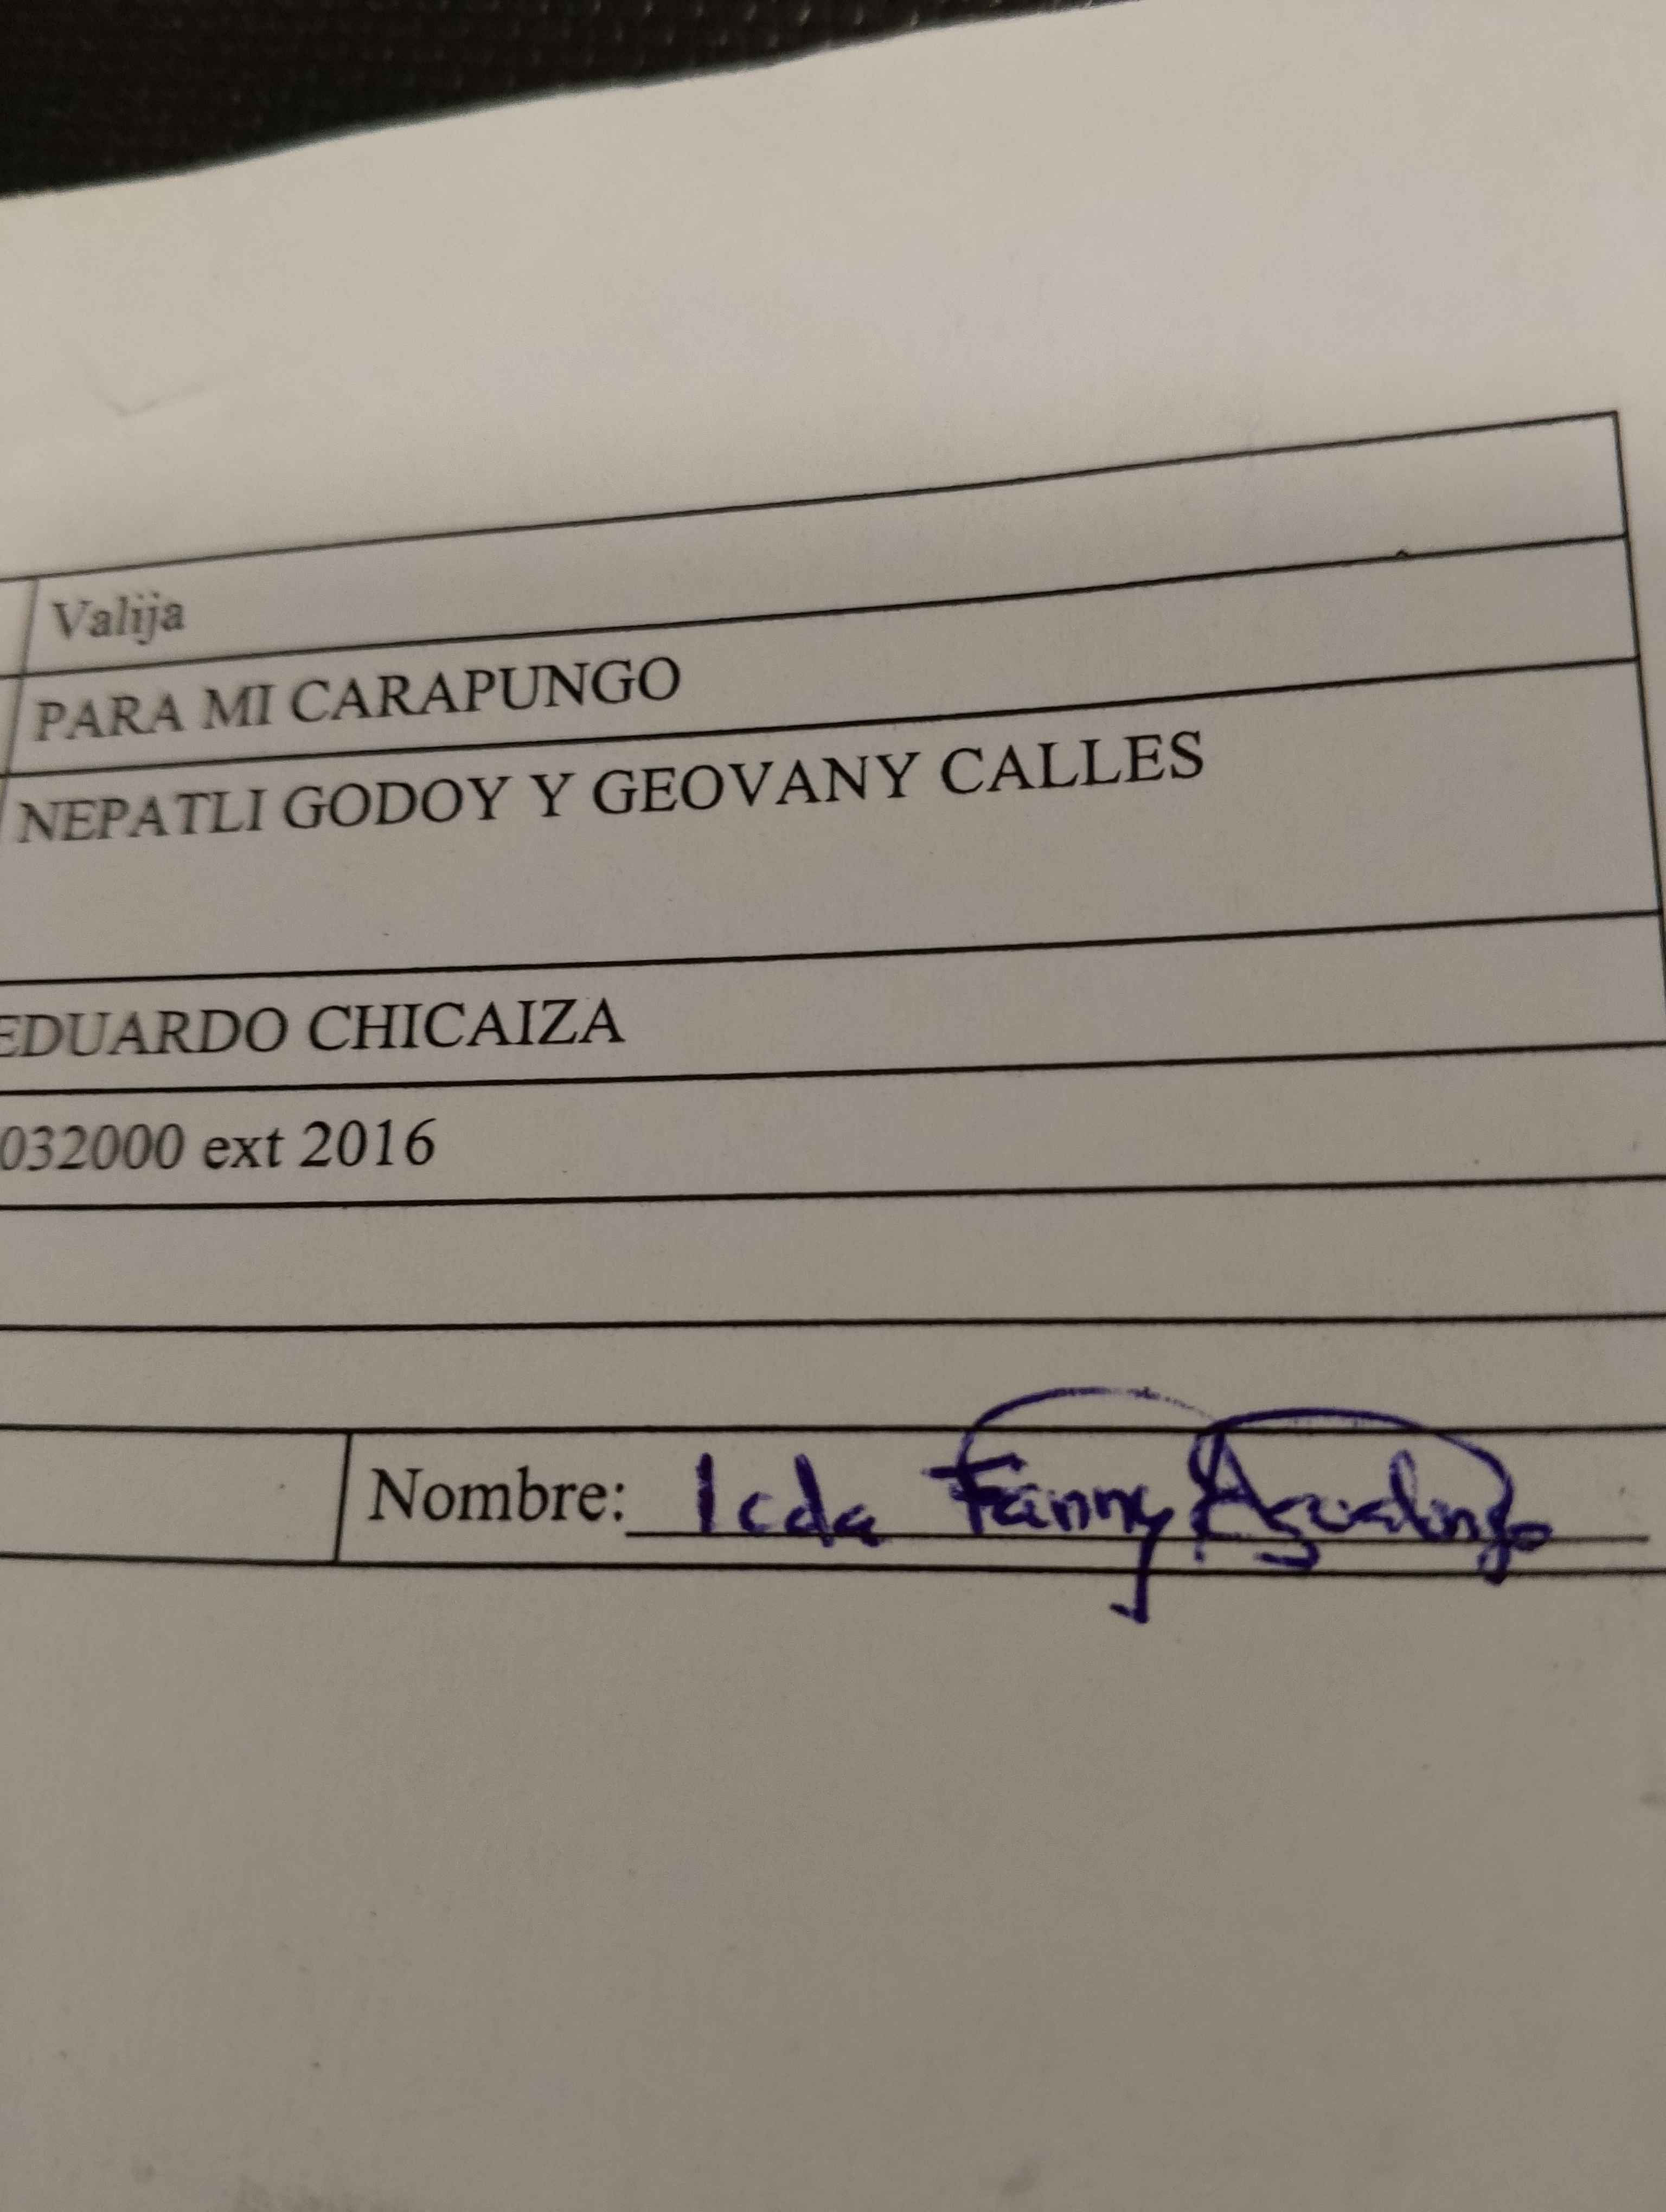 Valija
PARA MI CARAPUNGO
NEPATLI GODOY Y GEOVANY CALLES
EDUARDO CHICAIZA
032000 ext 2016
Nombre: lcda Fanny